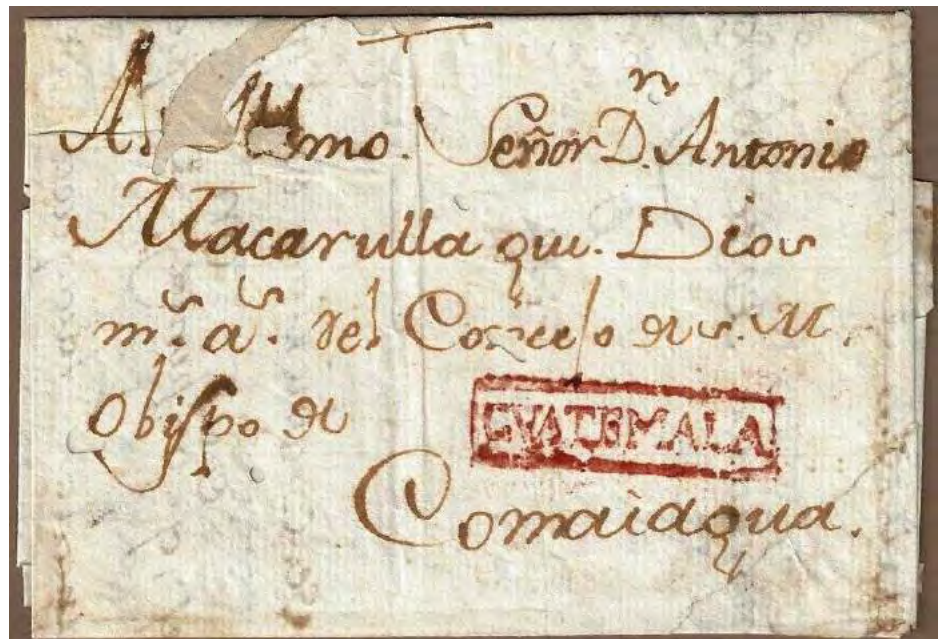 Al Illmo. Señor Dn. Antonio
Macarulla que. Dios
ms. as. del Consejo de S. M.
Obispo de
GVATEMALA
Comaiagua.